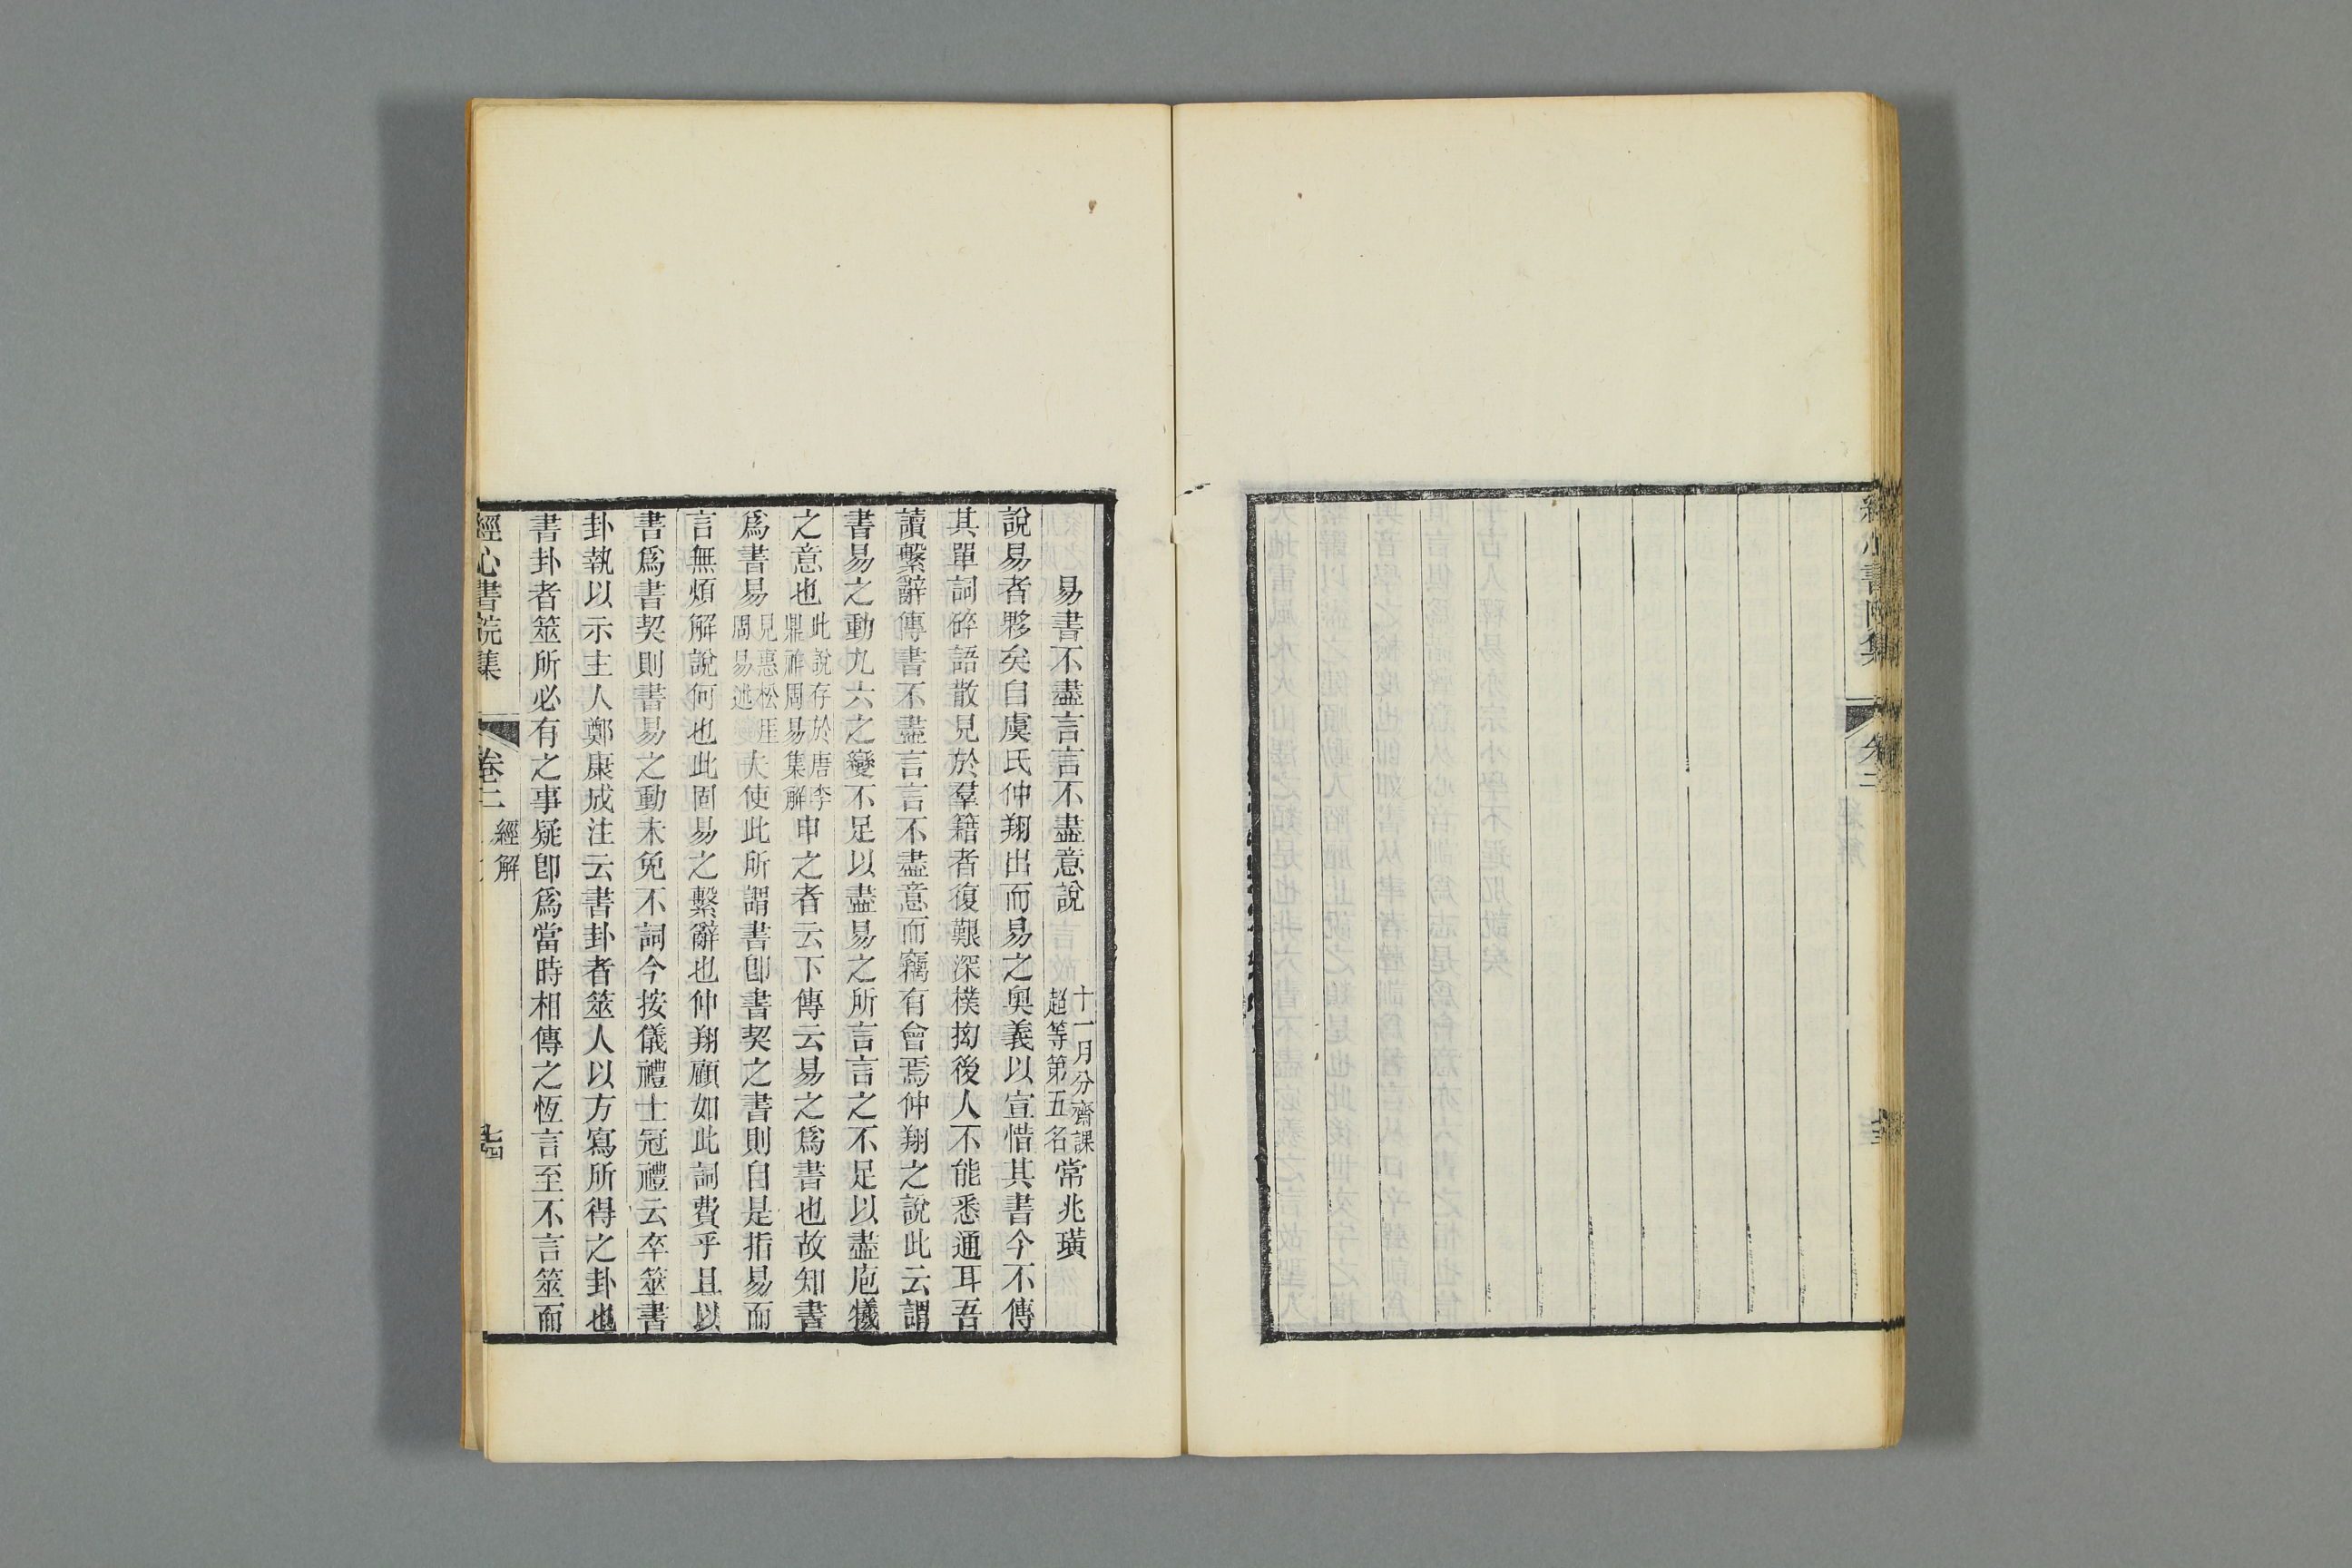 易書不盡言言不盡意說 十一月分齋課 超等第五名 常兆璜
說易者夥矣自虞氏仲翔出而易之奧義以宣惜其書今不傳
其單詞碎語散見於羣籍者復艱深樸拗後人不能悉通耳吾
讀繫辭傳書不盡言言不盡意而竊有會焉仲翔之說此云謂
書易之動九六之變不足以盡易之所言言之不足以盡庖犧
之意也 此說存於唐李 鼎祚周易集解 申之者云下傳云易之爲書也故知書
爲書易 見惠松厓 周易述 夫使此所謂書卽書契之書則自是指易而
言無煩解說何也此固易之繫辭也仲翔顧如此詞費乎且以
書爲書契則書易之動未免不詞今按儀禮士冠禮云卒筮書
卦執以示主人鄭康成注云書卦者筮人以方寫所得之卦也
書卦者筮所必有之事疑卽爲當時相傳之恆言至不言筮而
經心書院集 卷二 經解